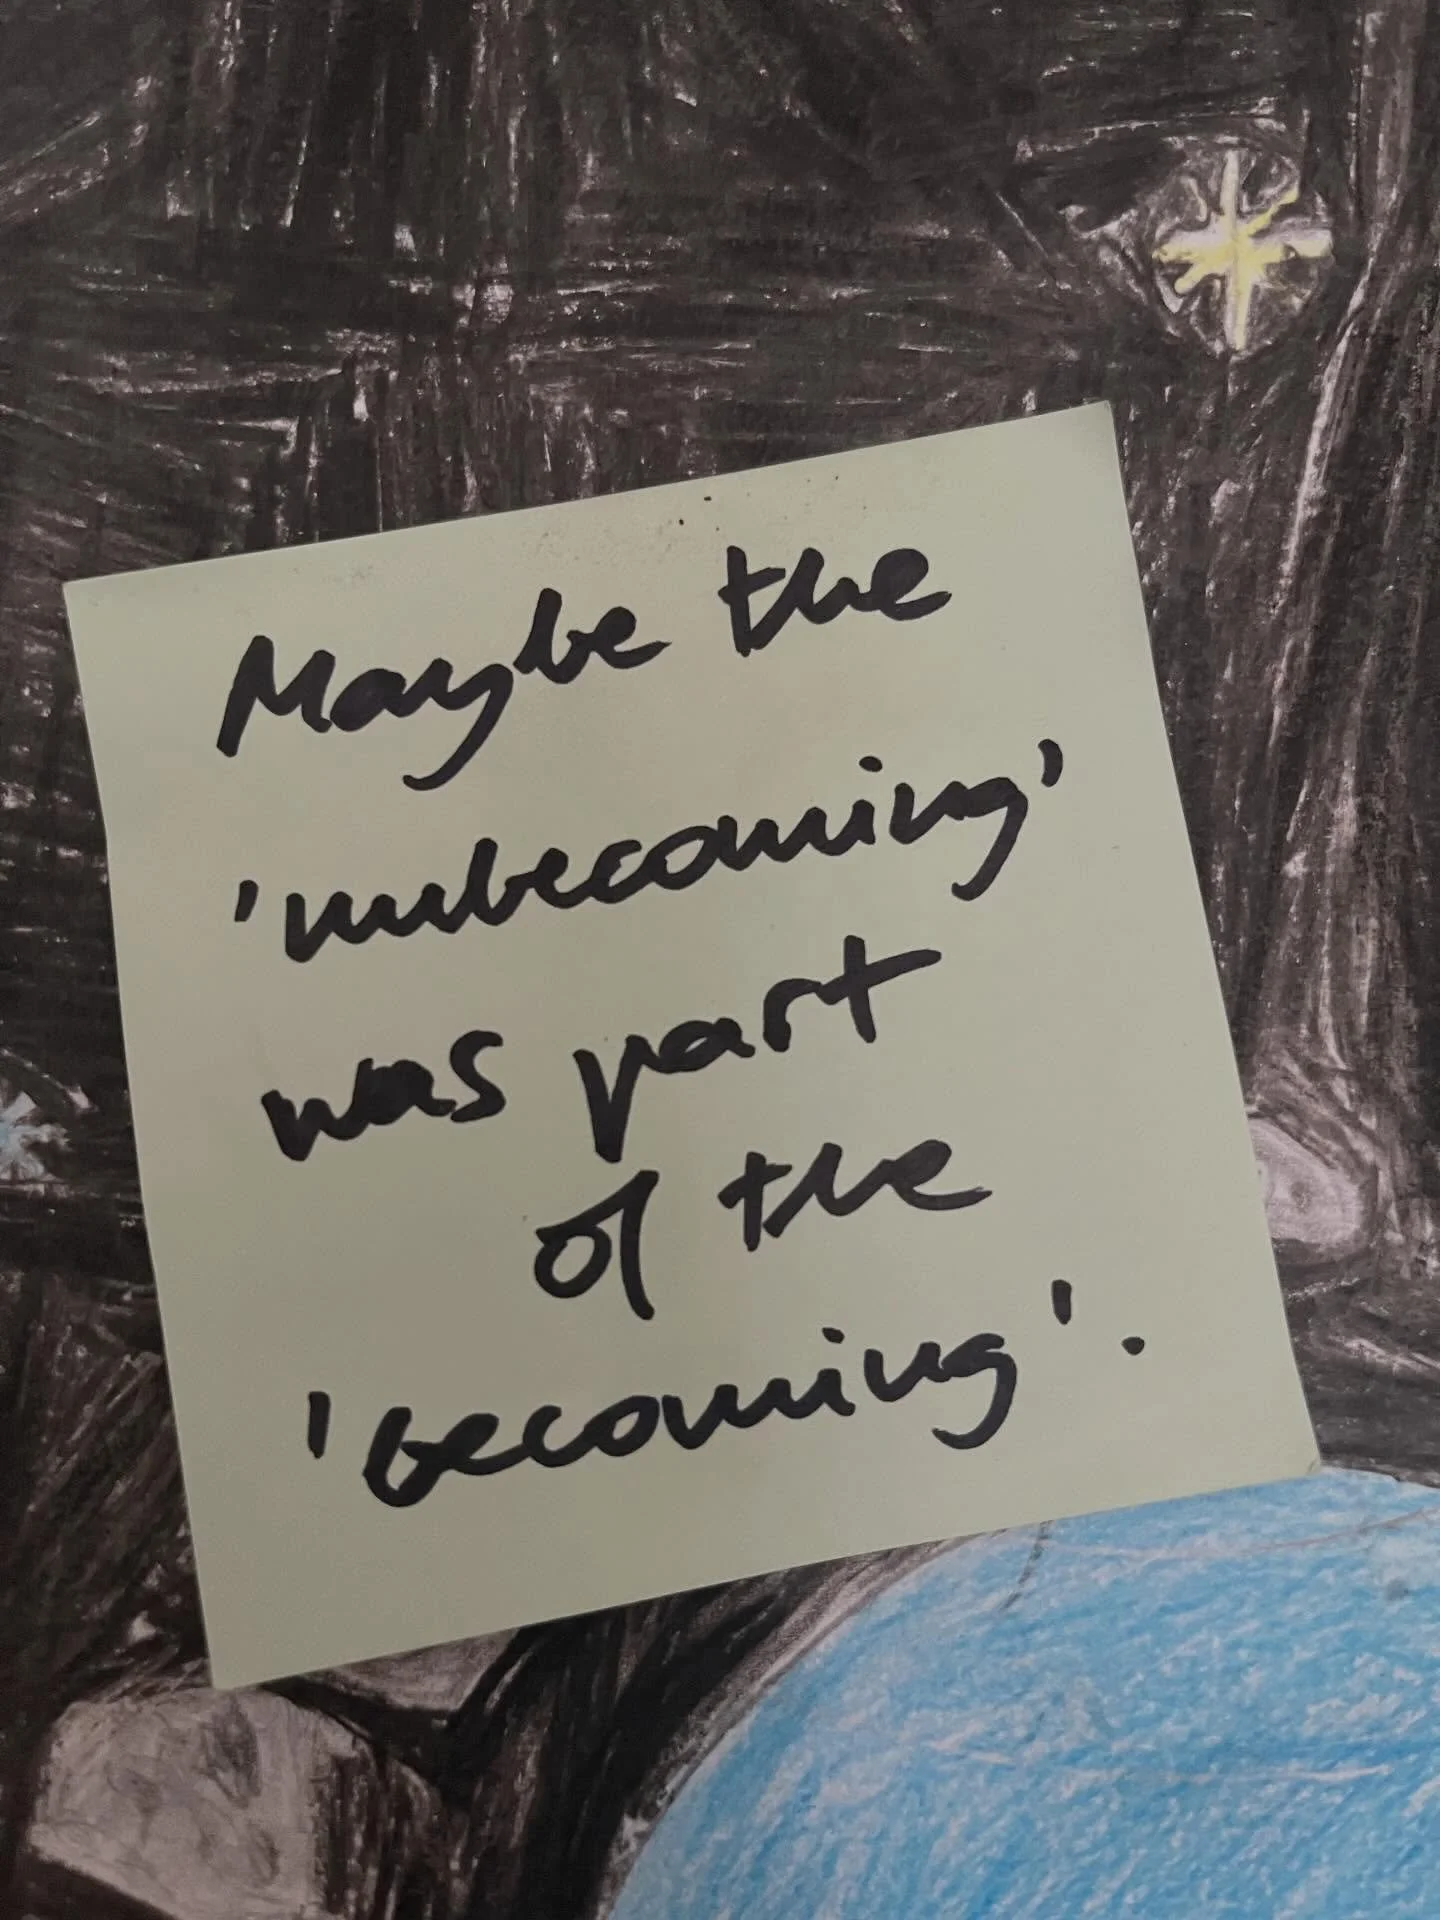 Maybe the
'unbecoming'
was part
of the
'becoming'.